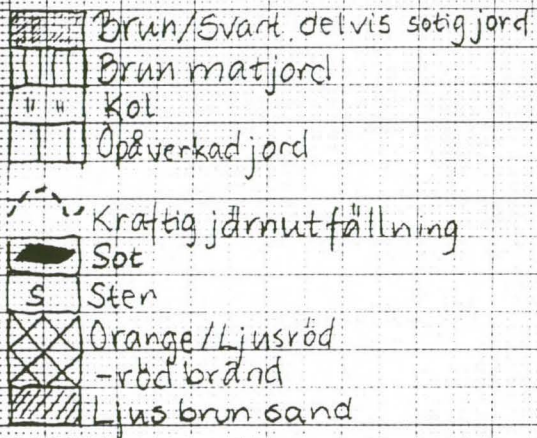 Brun/Svart delvis sotig jord
Brun matjord
Kol
Opåverkad jord
Kraftig järnutfällning
Sot
S Sten
Orange/Ljusröd
-röd bränd
Ljus brun sand